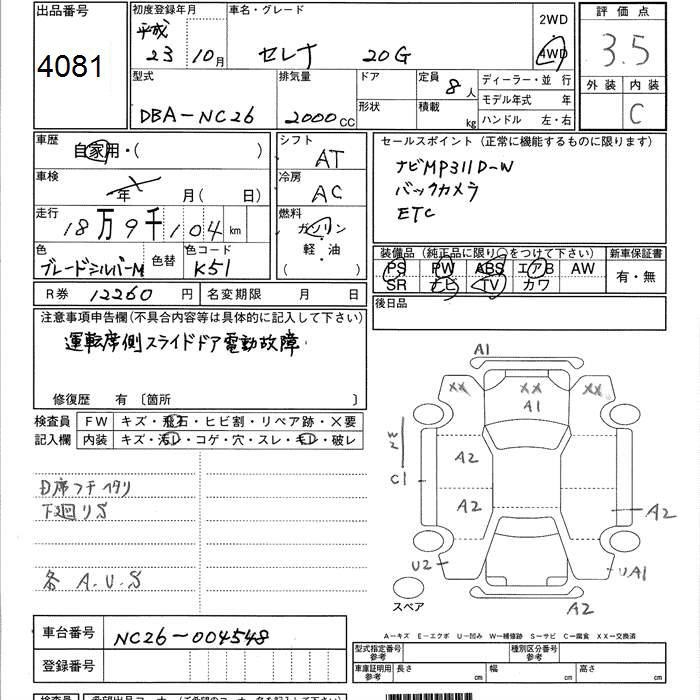 出品番号
4081
初度登録年月
平成
23 10月
車名・グレード
セレナ 20G
2WD
・
4WD
評価点
3.5
外装 内装
C
型式
DBA-NC26
排気量
2000cc
ドア
形状
定員
8人
積載
kg
ディーラー・並行
モデル年式 年
ハンドル 左・右
車歴
自家用・( )
車検
年 月(日)
走行
18万9千104km
色
ブレードシルバーM
色替
色コード
K51
シフト
AT
冷房
AC
燃料
ガソリン
軽・油
( )
セールスポイント(正常に機能するものに限ります)
ナビMP311D-W
バックカメラ
ETC
装備品(純正品に限り○をつけて下さい)
新車保証書
PS PW ABS エアB AW
SR ナビ TV カワ
有・無
R券 12260円
名変期限 月 日
後日品
注意事項申告欄(不具合内容等は具体的に記入して下さい)
運転席側スライドドア電動故障
修復歴 有 〔箇所 〕
検査員
記入欄
FW キズ・飛石・ヒビ割・リペア跡・X要
内装 キズ・汚レ・コゲ・穴・スレ・モレ・破レ
下廻りS
各A.U.S
A1
XX XX XX
A1
C1
A2
A2
A2
U2
UA1
A2
スペア
A-キズ E-エクボ U-凹み W-補修跡 S-サビ C-腐食 XX-交換済
車台番号
NC26-004548
登録番号
型式指定番号
参考
種別区分番号
参考
車庫証明用
参考
長さ cm
幅 cm
高さ cm